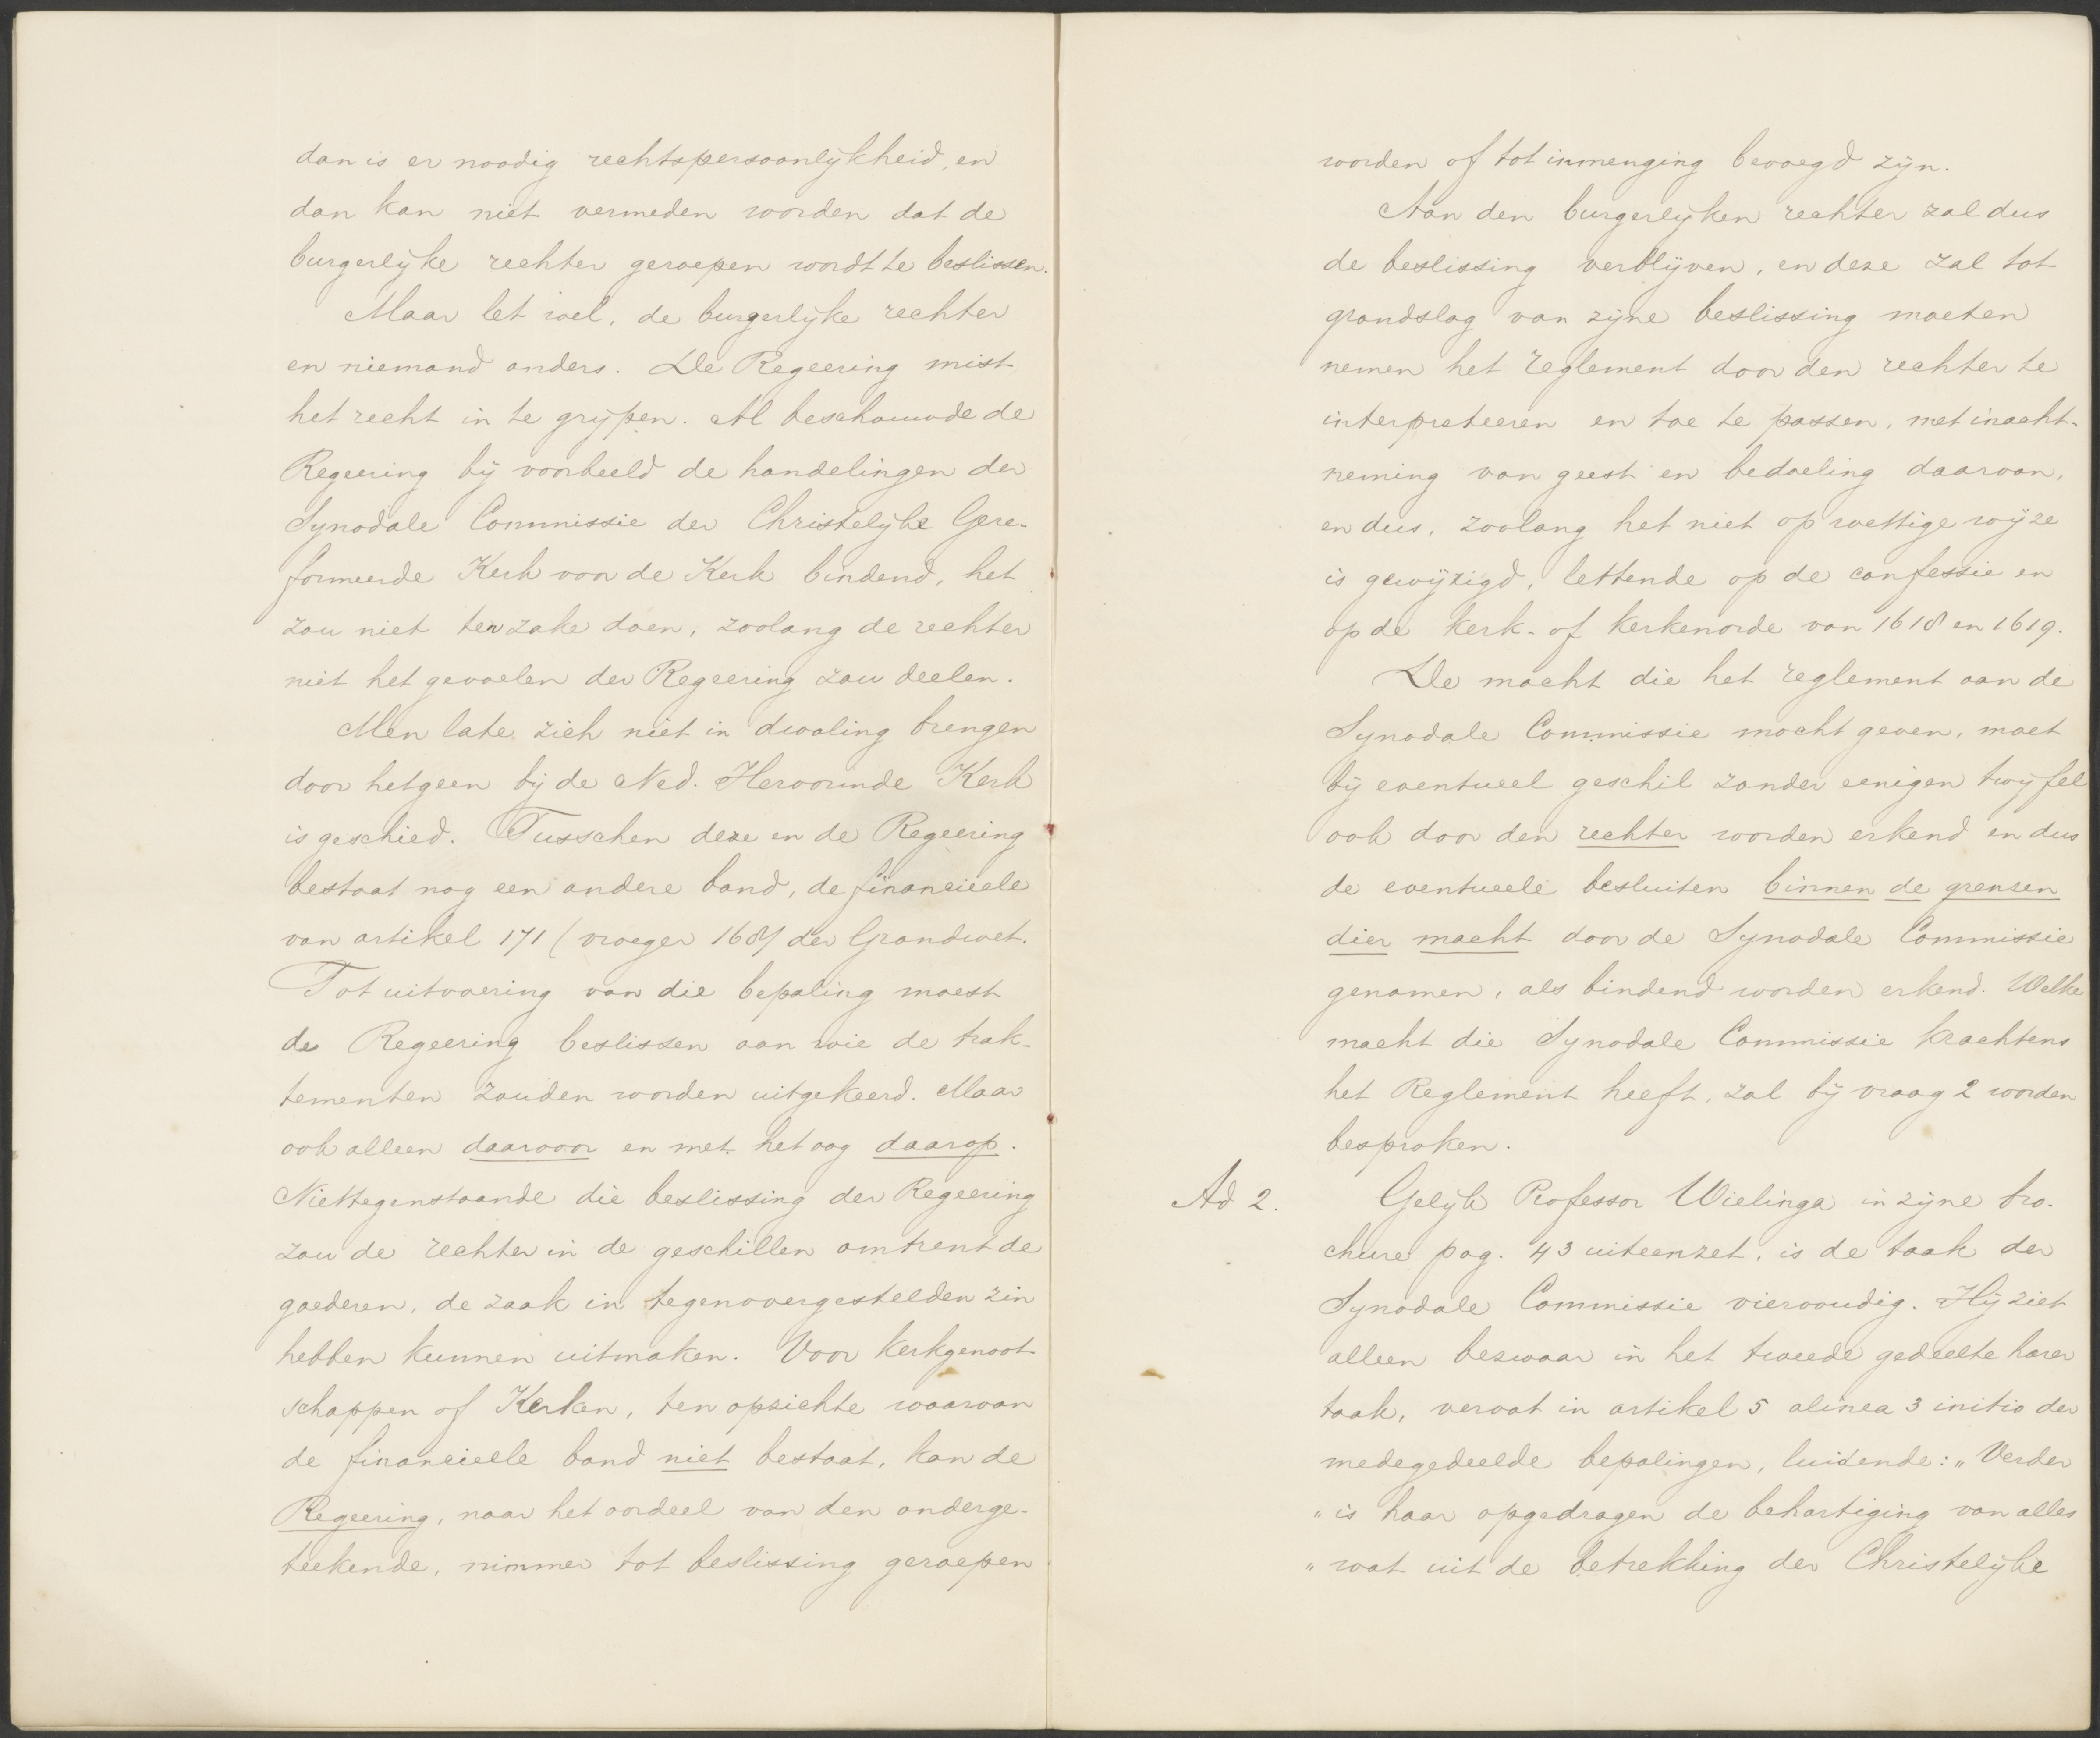 dan is er noodig rechtspersoonlijkheid, en
dan kan niet vermeden worden dat de
burgerlijke rechter geroepen wordt te beslissen.
Maar let wel, de burgerlijke rechter
en niemand anders. De Regeering mist
het recht in te grijpen. Al beschouwde de
Regeering bij voorbeeld de handelingen der
Synodale Commissie der Christelijke Gere-
formeerde Kerk voor de Kerk bindend, het
zou niet ter zake doen, zoolang de rechter
niet het gevoelen der Regeering zou deelen.
Men late zich niet in dwaling brengen
door hetgeen bij de Ned. Hervormde Kerk
is geschied. Tusschen deze en de Regeering
bestaat nog een andere band, de financieele
van artikel 171 (vroeger 168) der Grondwet.
Tot uitvoering van die bepaling moest
de Regeering beslissen aan wie de trak-
tementen zouden worden uitgekeerd. Maar
ook alleen daarvoor en met het oog daarop.
Niettegenstaande die beslissing der Regeering
zou de rechter in de geschillen omtrent de
goederen, de zaak in tegenovergestelden zin
hebben kunnen uitmaken. Voor kerkgenoot-
schappen of Kerken, ten opzichte waarvan
de financieele band niet bestaat, kan de
Regeering, naar het oordeel van den onderge-
teekende, nimmer tot beslissing geroepen
worden of tot inmenging bevoegd zijn.
Aan den burgerlijken rechter zal dus
de beslissing verblijven, en deze zal tot
grondslag van zijne beslissing moeten
nemen het reglement door den rechter te
interpreteeren en toe te passen, met inacht-
neming van geest en bedoeling daarvan,
en dus, zoolang het niet op wettige wijze
is gewijzigd, lettende op de confessie en
op de kerk- of kerkenorde van 1618 en 1619.
De macht die het reglement aan de
Synodale Commissie mocht geven, moet
bij eventueel geschil zonder eenigen twijfel
ook door den rechter worden erkend en dus
de eventueele besluiten binnen de grenzen
dier macht door de Synodale Commissie
genomen, als bindend worden erkend. Welke
macht die Synodale Commissie krachtens
het Reglement heeft, zal bij vraag 2 worden
besproken.
Ad 2. Gelijk Professor Wielinga in zijne bro-
chure pag. 43 uiteenzet, is de taak der
Synodale Commissie viervoudig. Hij ziet
alleen bezwaar in het tweede gedeelte harer
taak, vervat in artikel 5 alinea 3 initio der
medegedeelde bepalingen, luidende: „Verder
„is haar opgedragen de behartiging van alles
„wat uit de betrekking der Christelijke